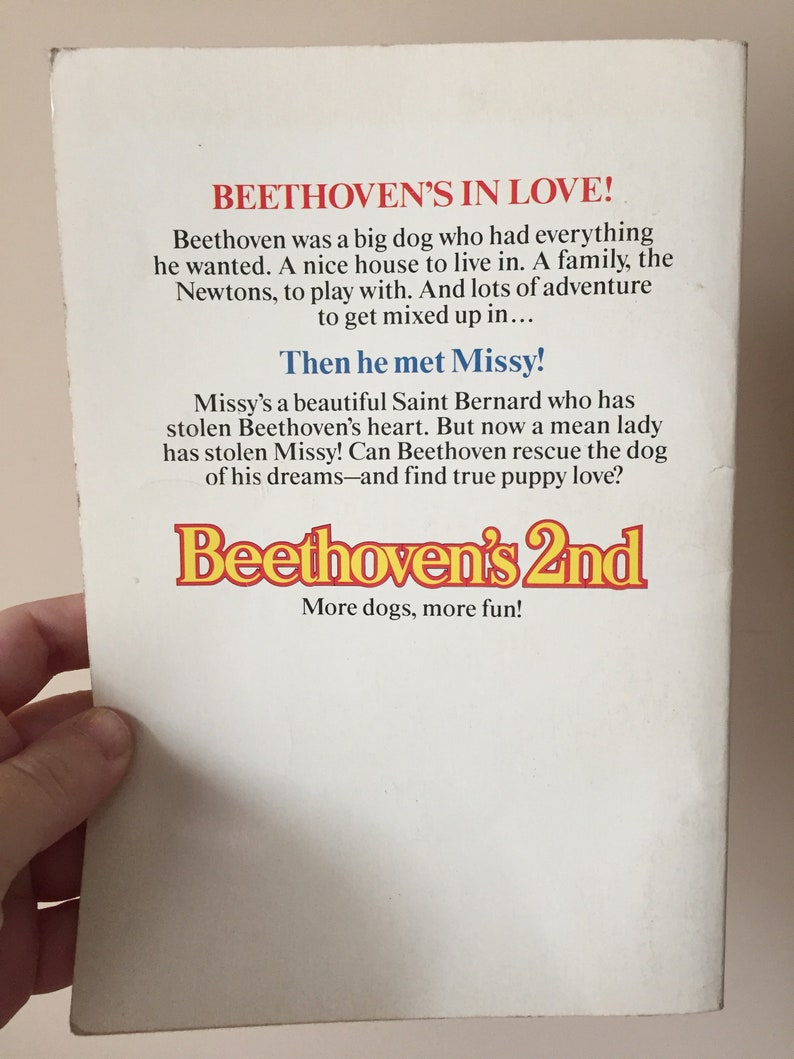 BEETHOVEN'S IN LOVE!
Beethoven was a big dog who had everything
he wanted. A nice house to live in. A family, the
Newtons, to play with. And lots of adventure
to get mixed up in...
Then he met Missy!
Missy's a beautiful Saint Bernard who has
stolen Beethoven's heart. But now a mean lady
has stolen Missy! Can Beethoven rescue the dog
of his dreams—and find true puppy love?
Beethoven's 2nd
More dogs, more fun!